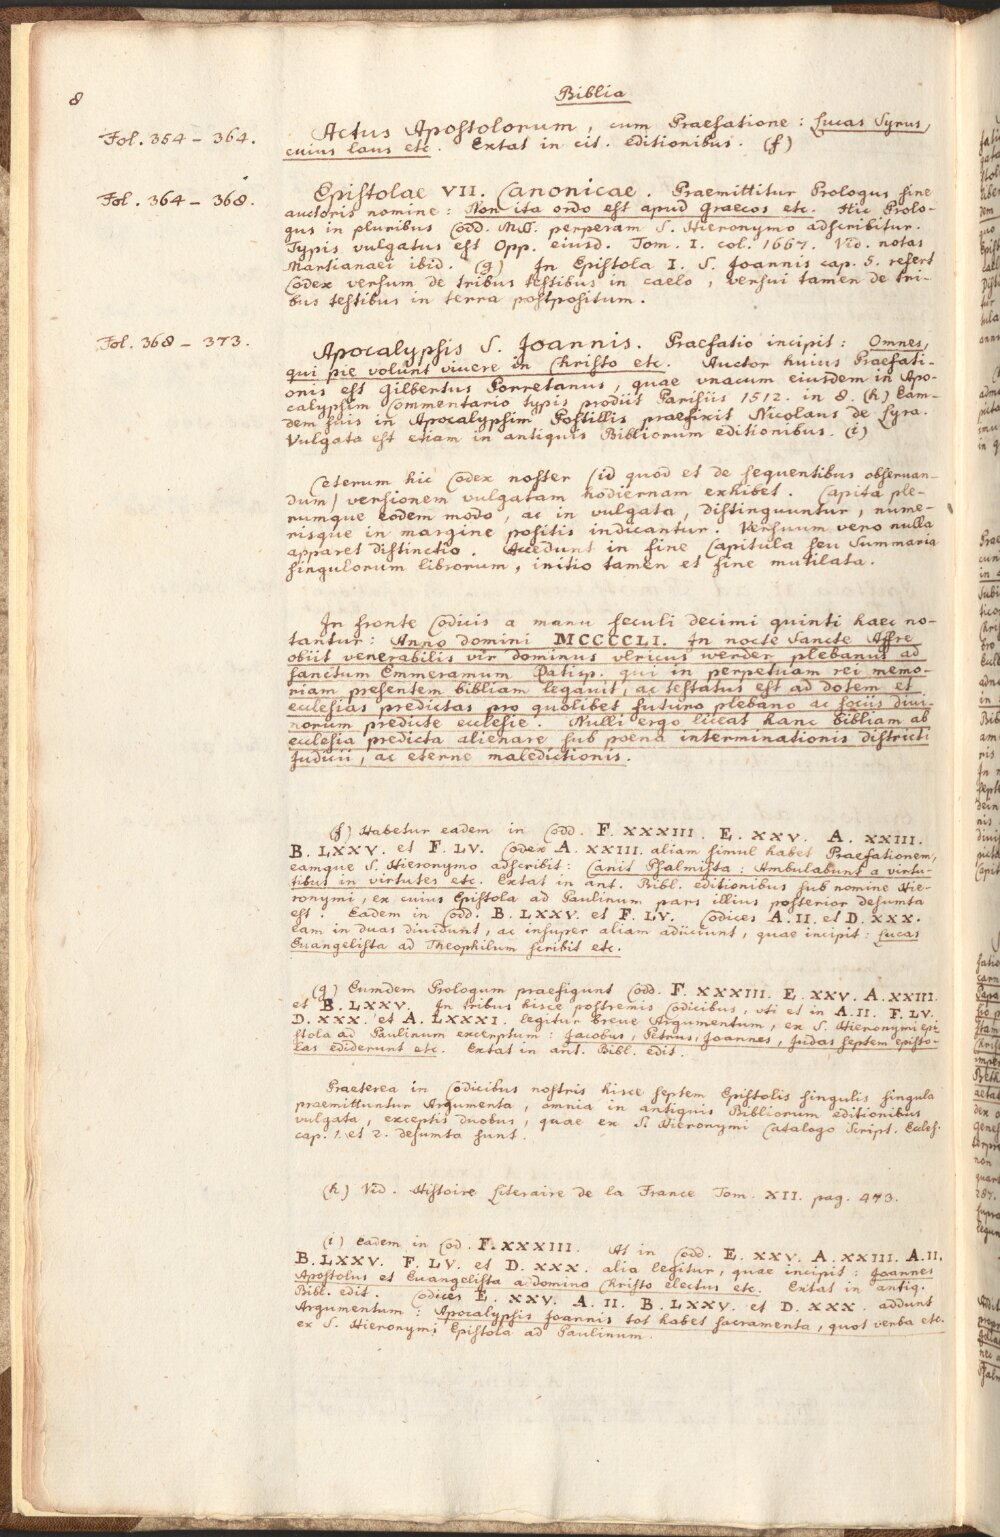 8
Biblia
Fol. 354 - 364.
Actus Apostolorum, cum Praefatione: Lucas Syrus,
cuius laus etc. Extat in cit. editionibus. (f)
Fol. 364 - 368.
Epistolae VII. Canonicae. Praemittitur Prologus sine
auctoris nomine: Non ita ordo est apud Graecos etc. Hic Prolo-
gus in pluribus Codd. MS. perperam S. Hieronymo adscribitur.
Typis vulgatus est Opp. eiusd. Tom. I. col. 1667. Vid. notas
Martianaei ibid. (g) In Epistola I. S. Joannis cap. 5. refert
Codex versum de tribus testibus in caelo, versui tamen de tri-
bus testibus in terra postpositum.
Fol. 368 - 373.
Apocalypsis S. Joannis. Praefatio incipit: Omnes,
qui pie volunt vivere in Christo etc. Auctor huius Praefati-
onis est Gilbertus Porretanus, quae vnacum eiusdem in Apo-
calypsim Commentario typis prodiit Parisiis 1512. in 8. (h) Eam-
dem suis in Apocalypsim Postillis praefixit Nicolaus de Lyra.
Vulgata est etiam in antiquis Bibliorum editionibus. (i)
Ceterum hic Codex noster (id quod et de sequentibus observan-
dum) versionem vulgatam hodiernam exhibet. Capita ple-
rumque eodem modo, ac in vulgata, distinguuntur, nume-
risque in margine positis indicantur. Versuum vero nulla
apparet distinctio. Accedunt in fine Capitula seu Summaria
singulorum librorum, initio tamen et fine mutilata.
In fronte Codicis a manu seculi decimi quinti haec no-
tantur: Anno domini MCCCCLI. In nocte Sancte Affre
obiit venerabilis vir dominus vlricus werder plebanus ad
sanctum Emmeramum Ratisp. qui in perpetuam rei memo-
riam presentem bibliam legauit, ac testatus est ad dotem et
ecclesias predictas pro quolibet futuro plebano ac sociis diui-
norum predicte ecclesie. Nulli ergo liceat hanc bibliam ab
ecclesia predicta alienare sub poena interminationis districti
Judicii, ac eterne maledictionis.
(f) Habetur eadem in Codd. F. XXXIII. E. XXV. A. XXIII.
B. LXXV. et F. LV. Codex A. XXIII. aliam simul habet Praefationem,
eamque S. Hieronymo adscribit: Canit Psalmista: Ambulabunt a virtu-
tibus in virtutes etc. Extat in ant. Bibl. editionibus sub nomine Hie-
ronymi, ex cuius Epistola ad Paulinum pars illius posterior desumta
est. Eadem in Codd. B. LXXV. et F. LV. Codices A. II. et D. XXX.
eam in duas diuidunt, ac insuper aliam adiiciunt, quae incipit: Lucas
Euangelista ad Theophilum scribit etc.
(g) Eumdem Prologum praefigunt Codd. F. XXXIII. E. XXV. A. XXIII.
et B. LXXV. In tribus hisce postremis Codicibus, vti et in A. II. F. LV.
D. XXX. et A. LXXXI. legitur breue Argumentum, ex S. Hieronymi Epi-
stola ad Paulinum excerptum: Jacobus, Petrus, Joannes, Judas septem episto-
las ediderunt etc. Extat in ant. Bibl. edit.
Praeterea in Codicibus nostris hisce septem Epistolis singulis singula
praemittuntur Argumenta, omnia in antiquis Bibliorum editionibus
vulgata, exceptis duobus, quae ex S. Hieronymi Catalogo Script. Eccles.
cap. 1. et 2. desumta sunt.
(h) Vid. Histoire Literaire de la France Tom. XII. pag. 473.
(i) Eadem in Cod. F. XXXIII. At in Codd. E. XXV. A. XXIII. A. II.
B. LXXV. F. LV. et D. XXX. alia legitur, quae incipit: Joannes
Apostolus et Euangelista a domino Christo electus etc. Extat in antiq.
Bibl. edit. Codices E. XXV. A. II. B. LXXV. et D. XXX. addunt
Argumentum: Apocalypsis Joannis tot habet sacramenta, quot verba etc.
ex S. Hieronymi Epistola ad Paulinum.